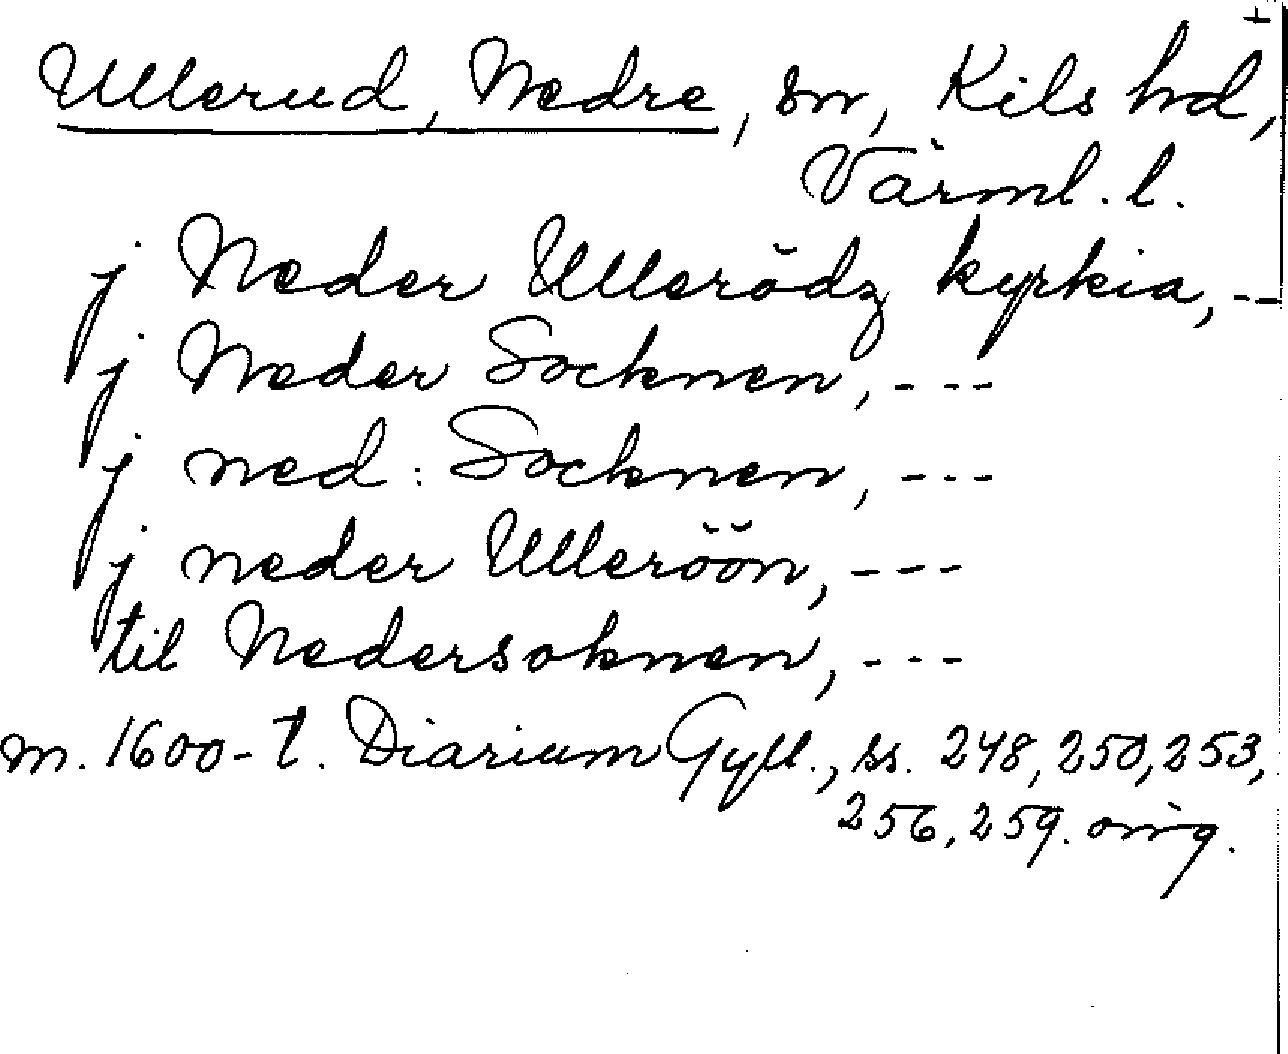 Ullerud, Nedre, sn, Kils hd,
Värml. l.
j Neder Ullerödz kyrkia, ---
j Neder Socknen, ---
j ned: Socknen, ---
j neder Ulleröön, ---
til Nedersoknen, ---
m. 1600-t. Diarium Gyll., ss. 248, 250, 253,
256, 259. orig.